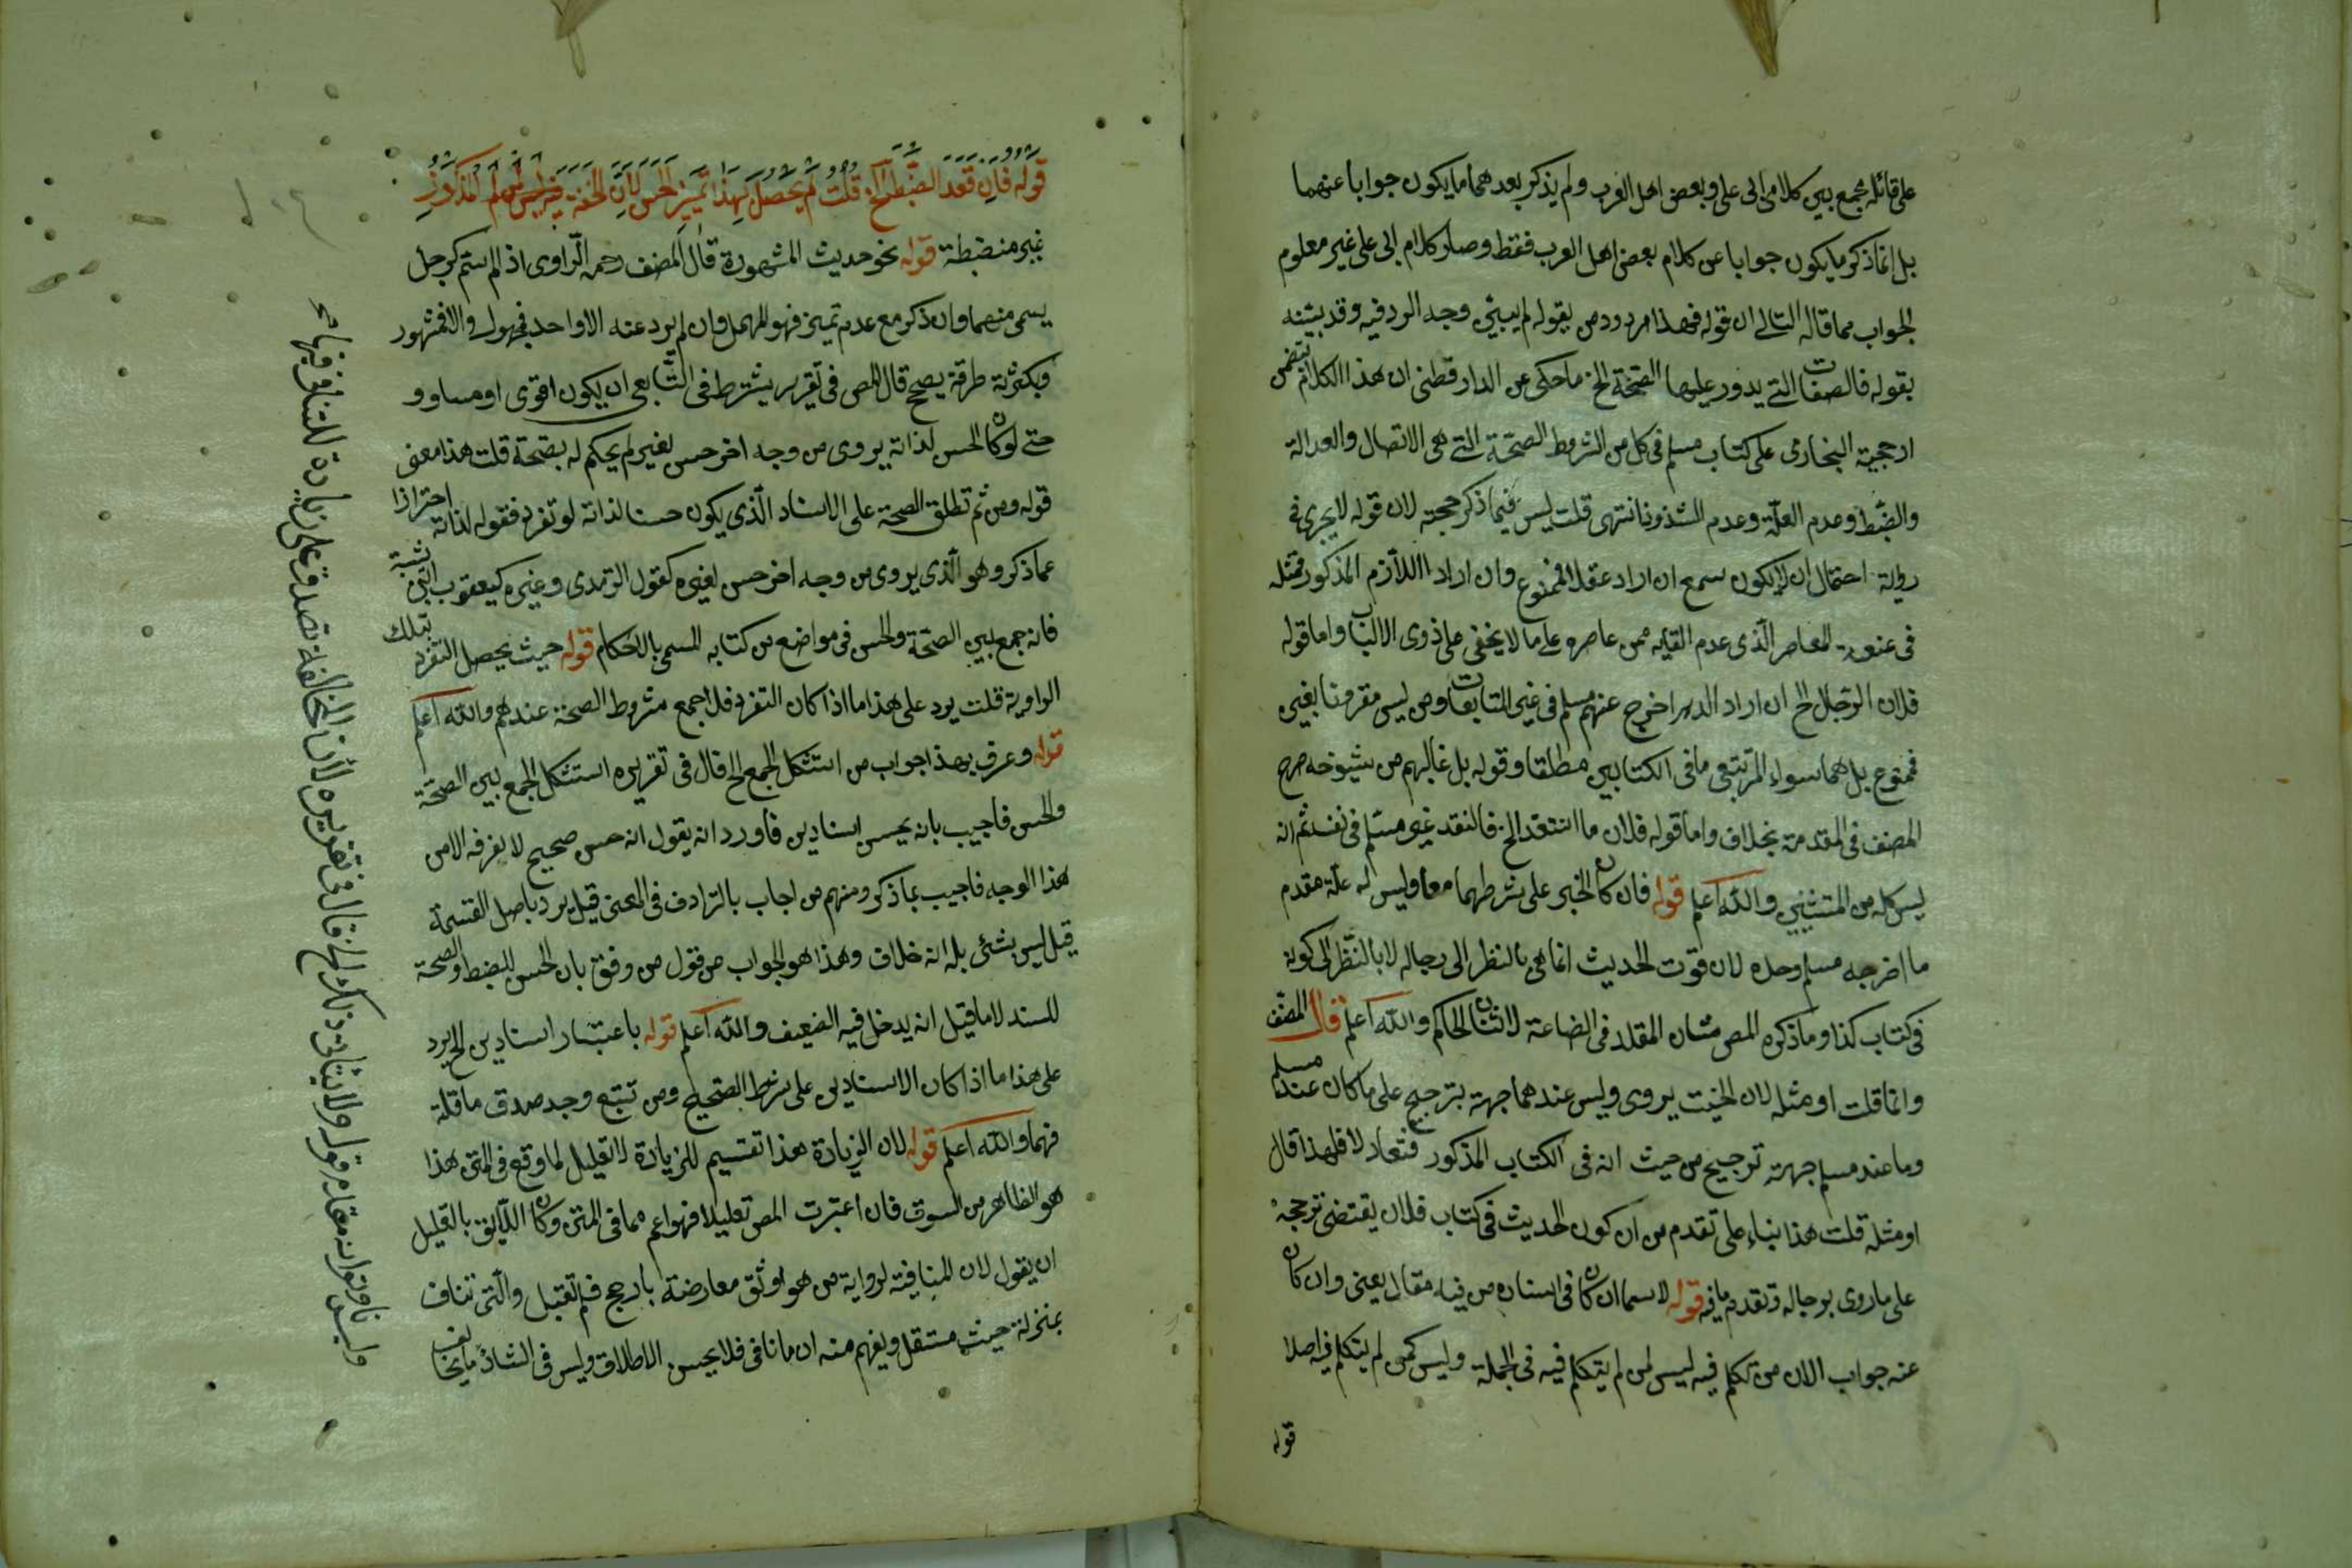 على قائله يجمع بين كلام ابى على وبعض اهل الغرب ولم يذكر بعد هما ما يكون جوابا عنهما
بل انما ذكر ما يكون جوابا عن كلام بعض اهل العرب فقط وصار كلام ابى على غير معلوم
الجواب مما قاله التالى ان قوله فهذا مردود من يقوله لم يبيّن وجه الرد فيه وقد بيّنه
بقوله فالصفات التى يدور عليها الصّحّة الخ ما حكى عن الدارقطنى ان هذا الكلام تتضمن
ارجحية البخارى على كتاب مسلم فى كل من الشروط الصحّة التى هى الاتصال والعدالة
والضبط وعدم العلّة وعدم الشذوذ انتهى قلت ليس فيما ذكر حجة لان قوله لا يجرى فى
رواية احتمال ان لا يكون سمع ان اراد عقلا فممنوع وان اراد اللازم المذكور فمثله
فى عنعنة المعاصر الّذى عدم لقيه ممن عاصره على ما لا يخفى على ذوى الالباب واما قوله
فلان الرّجال الخ ان اراد الذين اخرج عنهم مسلم فى غير المتابعات ومن ليس مقرونا بغير
فممنوع بل هما سواء لمن تتبعى ما فى الكتابين مطلقا وقوله بل غالبهم من شيوخه صرح
المصنف فى المقدمة بخلاف واما قوله فلان ما انتقد الخ فالنقد غير مسلم فى نفسه ثم انه
ليس كله من المتنين والله اعلم قوله فان كان الخبر على شرطهما معا وليس له علّة مقدم
ما اخرجه مسلم وحده لان قوّت الحديث انما هى بالنظر الى رجاله لا بالنّظر الى كونه
فى كتاب كذا وما ذكره المص شان المقلد فى الصناعة لا شان الحاكم والله اعلم قال المصنّف
وانما قلت او مثله لان الحديث يروى وليس عندهما جهة بترجيح على ما كان عند مسلم
وما عند مسلم جهة ترجيح من حيث انه فى الكتاب المذكور فتعادلا فلهذا قال
او مثله قلت هذا بناء على تقدم من ان كون الحديث فى كتاب فلان يقتضى ترجحه
على ما روى برجاله وتقدم ما فيه قوله لا سيما ان كان فى اسناده من فيه مقال يعنى وان كان
عنه جواب الان من تكلم فيه ليس لمن لم يتكلم فيه فى الجملة وليس كمن لم يتكلم فيه اصلا
قوله
قوله فان فقد الضّبط الخ قلت لم يحصل بهذا تميز الحسن لان الخفة المذكور
غير منضبطة قوله نحو حديث المشهورة قال المصنف رحمه الراوى اذا لم يستم كرجل
يسمى منهما وان ذكر مع عدم تميز فهو المهمل وان لم يرد عنه الا واحد فمجهول والا فمشهور
وبكثرة طرقة يصح قال المص فى تقرير يشترط فى التّابع ان يكون اقوى او مساو و
حتى لو كان الحسن لذاته يروى من وجه اخر حسن لغيره لم يحكم له بصّحة قلت هذا معنى
قوله ومن ثم تطلق الصحة على الاسناد الّذى يكون حسنا لذاته لو تفرد فقوله لذاته احترازا
عما ذكر وهو الّذى يروى من وجه اخر حسن لغيره كقول الترمدى وغيره كيعقوب بن شيبة
فانه جمع بين الصحّة والحسن فى مواضع من كتابه المسمى بالاحكام قوله حيث يحصل التفرد بتلك
الراوية قلت يرد على هذا ما اذا كان التفرد فلا جمع شروط الصحة عندهم والله اعلم
قوله وعرف بهذا جواب من استشكل الجمع الخ قال فى تقريره استشكل الجمع بين الصحّة
والحسن فاجيب بانه بحسب اسنادين فاورد انه يقول انه حسن صحيح لا نعرفه الا من
هذا الوجه فاجيب بما ذكر ومنهم من اجاب بالترادف فى المعنى قيل يرد باصل القسمة
قيل ليس بشئ بل انه خلاف وهذا هو الجواب من قول من وفق بان الحسن للضبط والصحة
للسند لا ما قيل انه يدخل فيه الضعيف والله اعلم قوله باعتبار اسنادين الخ يرد
على هذا ما اذا كان الاسنادين على شرط الصّحيح ومن تتبع وجد صدق ما قلة
فهما والله اعلم قوله لان الزيادة هذا تقسيم للزيادة لا تعليل لما وقع فى المتن هذا
هو الظاهر من السوق فان اعتبرت المص تعليلا فهو اعم مما فى المتن وكان اللّايق بالتعليل
ان يقول لان المنافية لرواية من هو اوثق معارضة بارجح فلم تقبل والّتى تناف
بمنزلة حديث مستقل ويفهم منه ان ما نافى فلا يحسن الاطلاق وليس فى الشاذ ما يخالف
وليس تصدق على زيادة للتنافى فيها